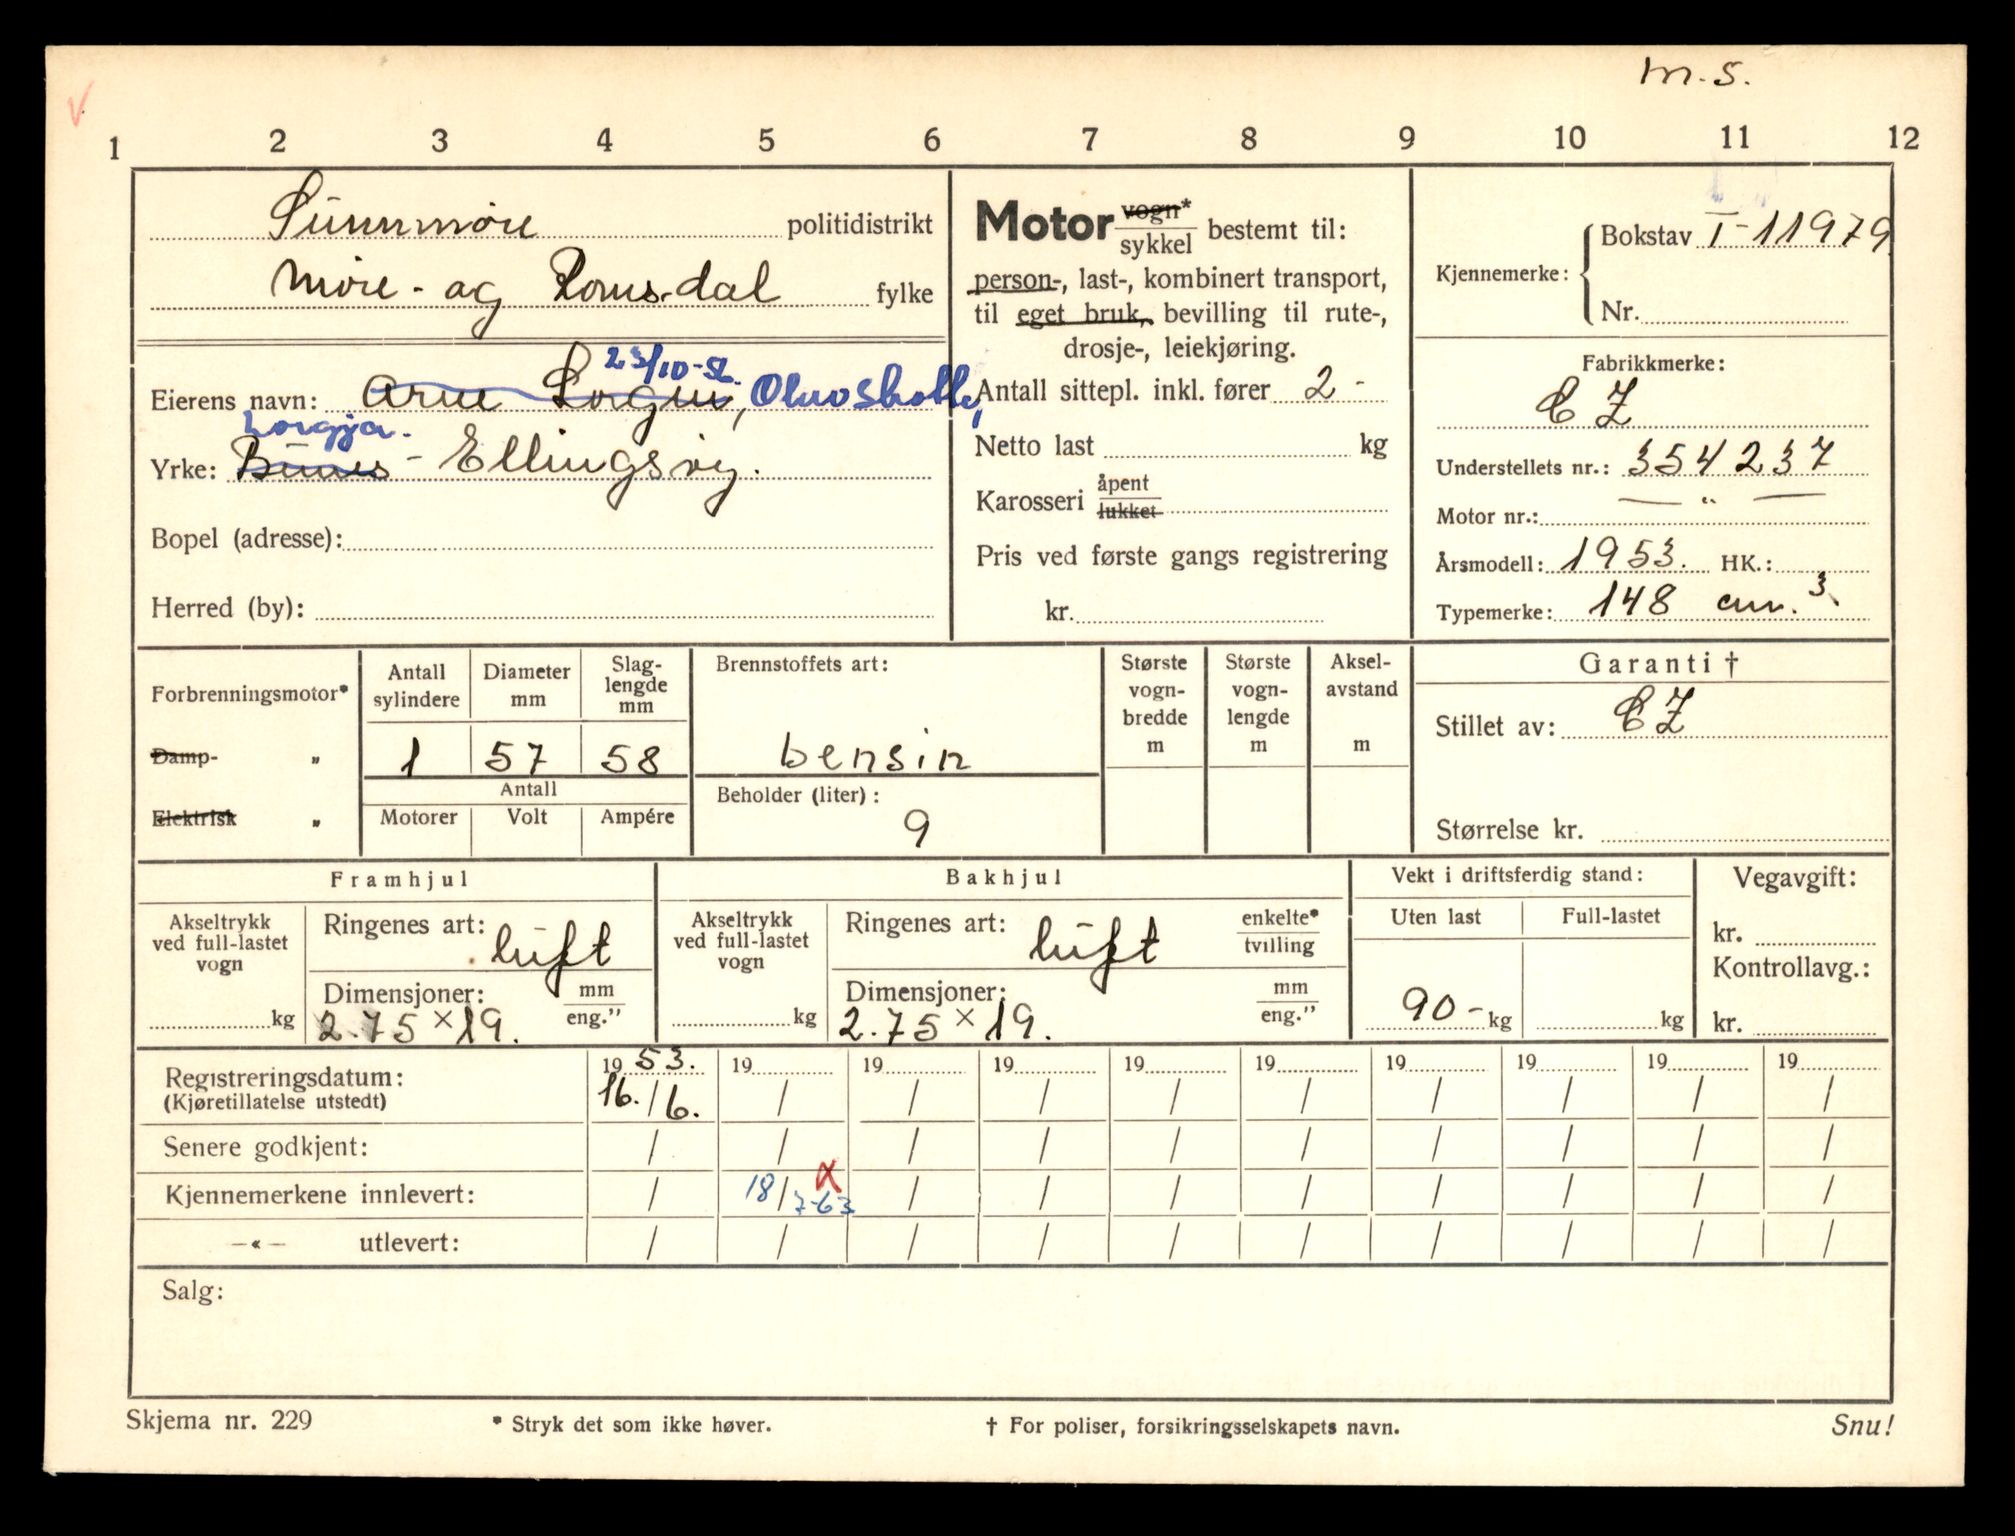 m.s.
1 2 3 4 5 6 7 8 9 10 11 12
Sunnmøre politidistrikt
Møre- og Romsdal fylke
23/10-56.
Eierens navn: Arne,
Yrke: - Ellingsøy.
Bopel (adresse):
Herred (by):
Motor vogn* sykkel bestemt til:
person-, last-, kombinert transport,
til eget bruk, bevilling til rute-,
drosje-, leiekjøring.
Antall sittepl. inkl. fører 2 -
Netto last kg
Karosseri åpent lukket
Pris ved første gangs registrering
kr.
Kjennemerke: Bokstav T-11979
Nr.
Fabrikkmerke:
CZ
Understellets nr.: 354237
Motor nr.: — " —
Årsmodell: 1953. HK.:
Typemerke: 148 cm.3
Forbrenningsmotor*
Damp- "
Elektrisk "
Antall sylindere Diameter mm Slaglengde mm
1 57 58
Antall
Motorer Volt Ampére
Brennstoffets art:
bensin
Beholder (liter):
9
Største vogn-bredde m
Største vogn-lengde m
Aksel-avstand m
Garanti †
Stillet av: CZ
Størrelse kr.
Framhjul
Akseltrykk ved full-lastet vogn kg
Ringenes art: luft
Dimensjoner: mm eng."
2.75 × 19.
Bakhjul
Akseltrykk ved full-lastet vogn kg
Ringenes art: luft enkelte* tvilling
Dimensjoner: mm eng."
2.75 × 19.
Vekt i driftsferdig stand:
Uten last Full-lastet
90- kg kg
Vegavgift:
kr.
Kontrollavg.:
kr.
Registreringsdatum: 1953. 19 19 19 19 19 19 19 19 19
(Kjøretillatelse utstedt) 16./6. / / / / / / / / /
Senere godkjent: / / / / / / / / / /
Kjennemerkene innlevert: / 18/7-63 / / / / / / / /
—«— utlevert: / / / / / / / / / /
Salg:
Skjema nr. 229
* Stryk det som ikke høver.
† For poliser, forsikringsselskapets navn.
Snu!